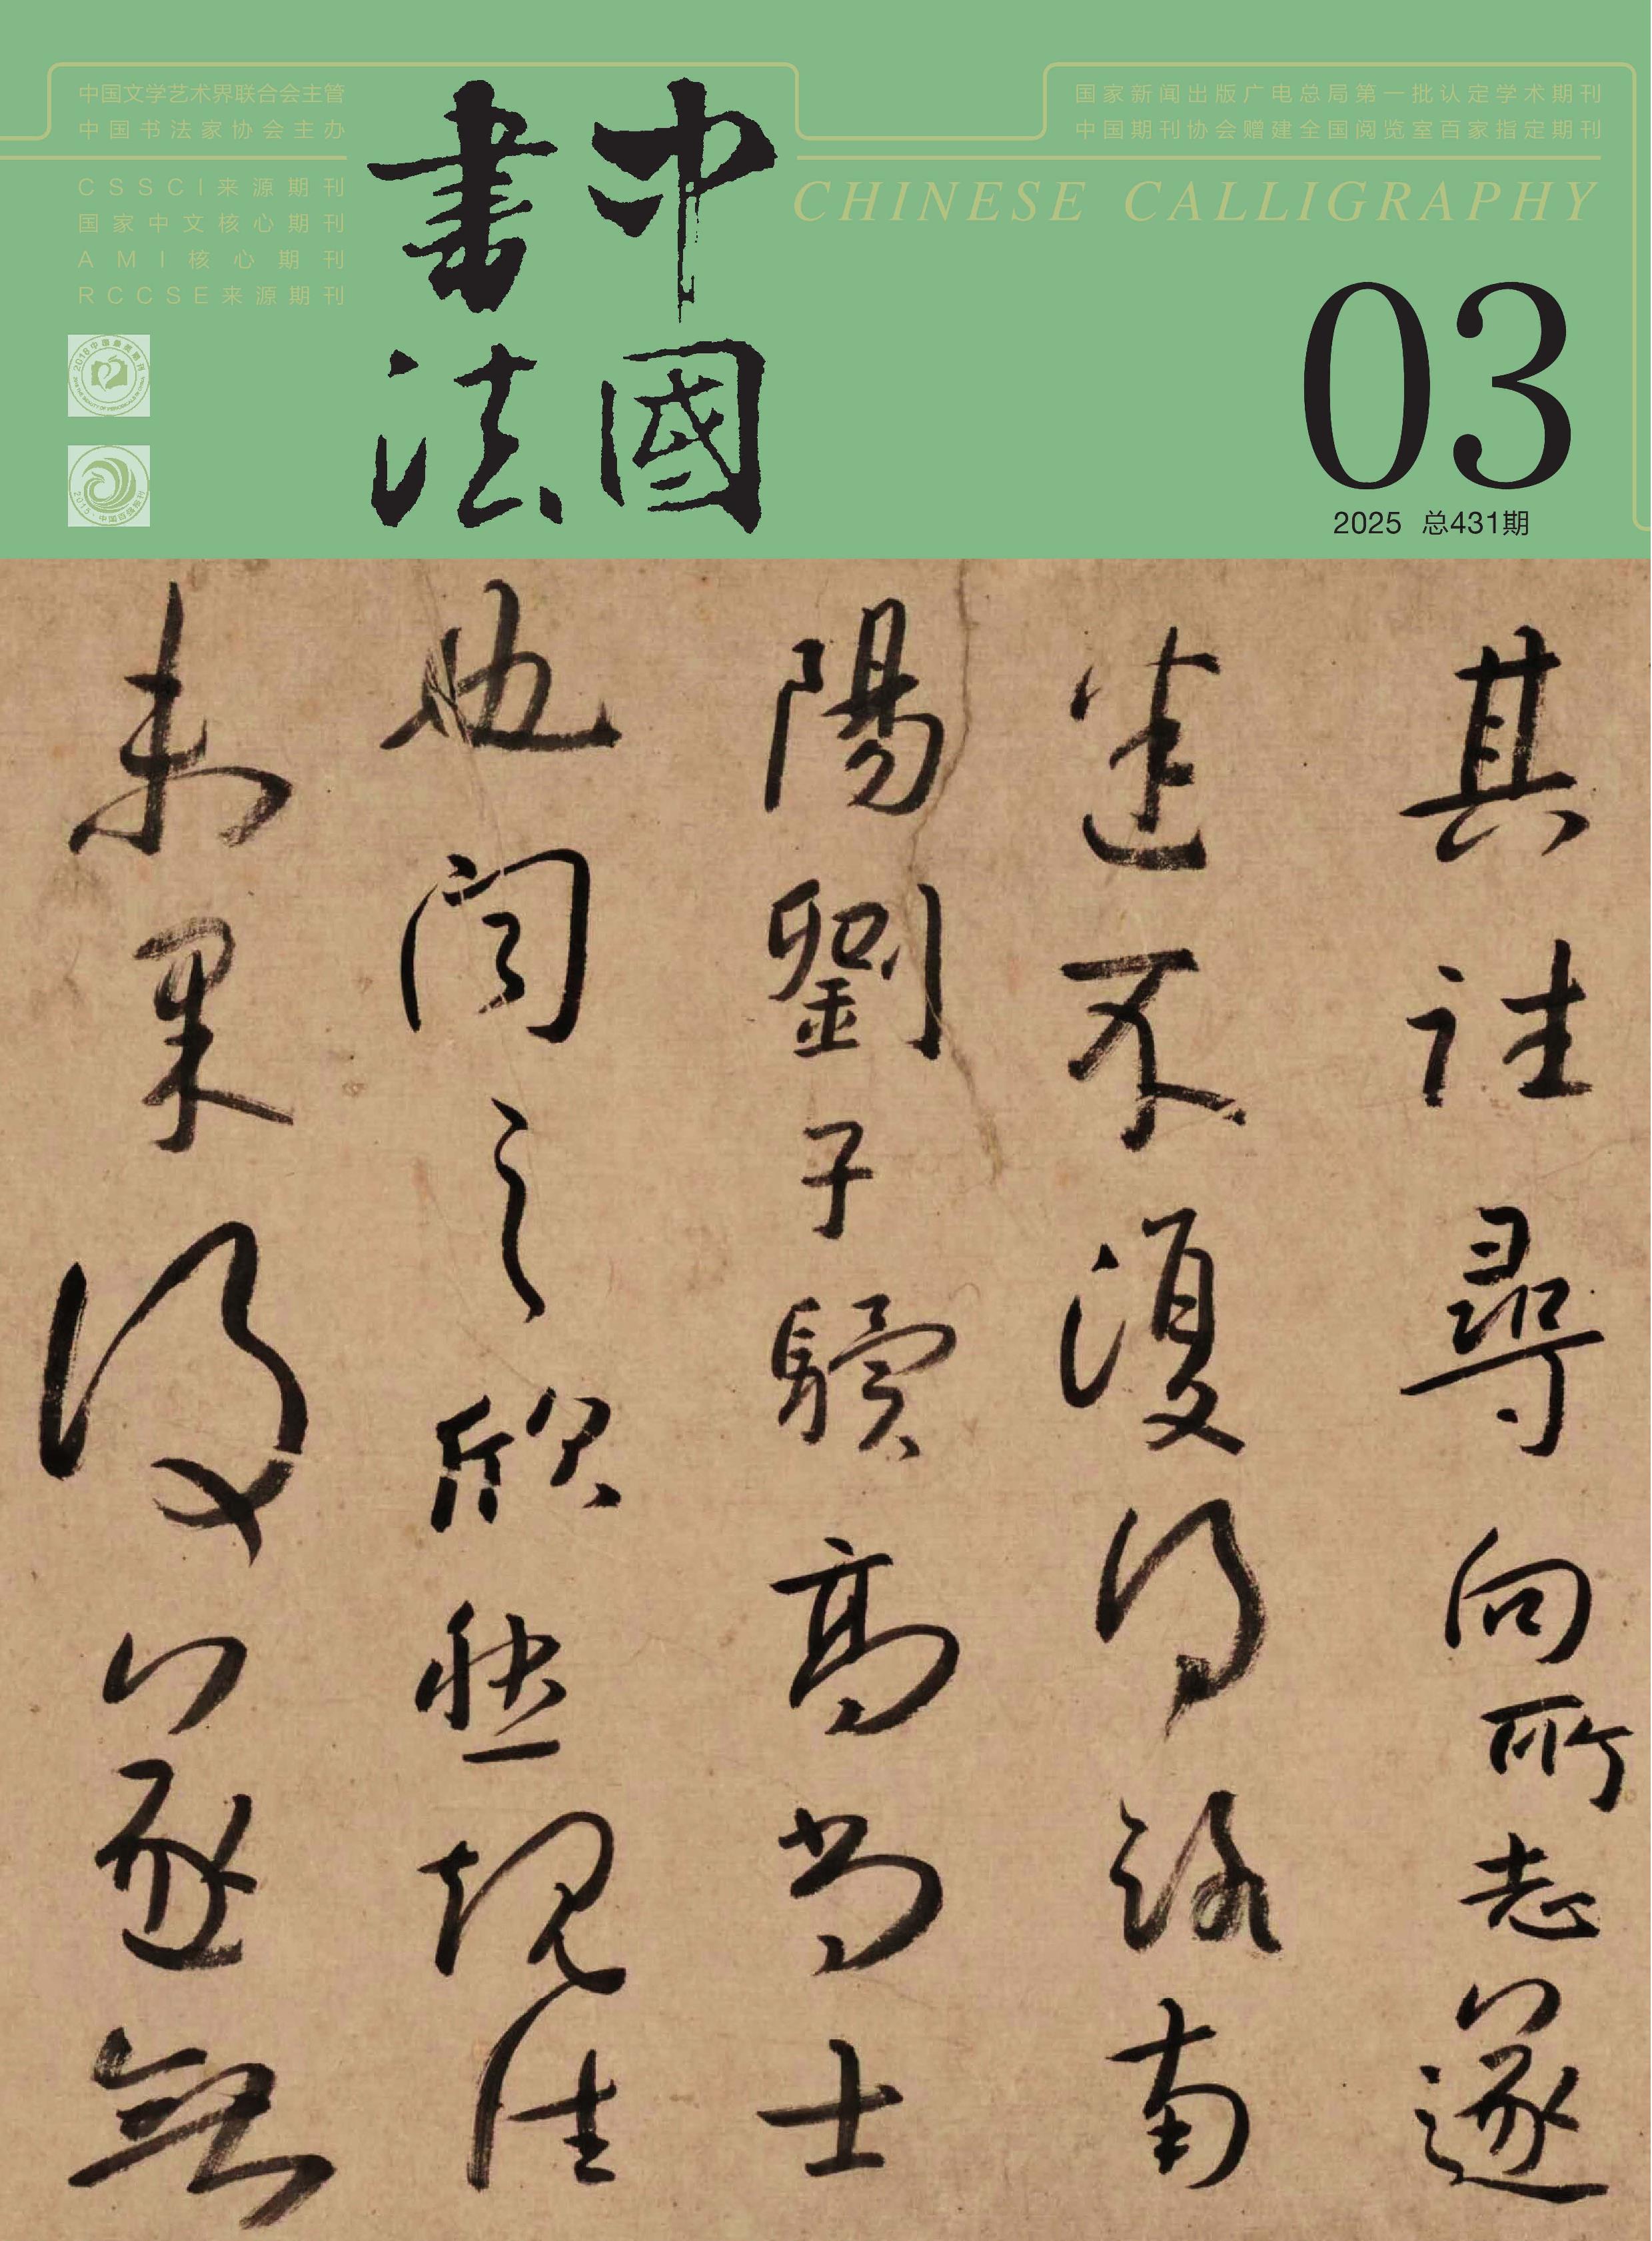 中国文学艺术界联合会主管
中国书法家协会主办
CSSCI来源期刊
国家中文核心期刊
AMI核心期刊
RCCSE来源期刊
中國
書法
国家新闻出版广电总局第一批认定学术期刊
中国期刊协会赠建全国阅览室百家指定期刊
CHINESE CALLIGRAPHY
03
2025 总431期
2016中国最美期刊
2015·中国百强报刊
其往尋向所志遂
迷不復得路南
陽劉子驥高尚士
也聞之欣然規往
未果後遂無